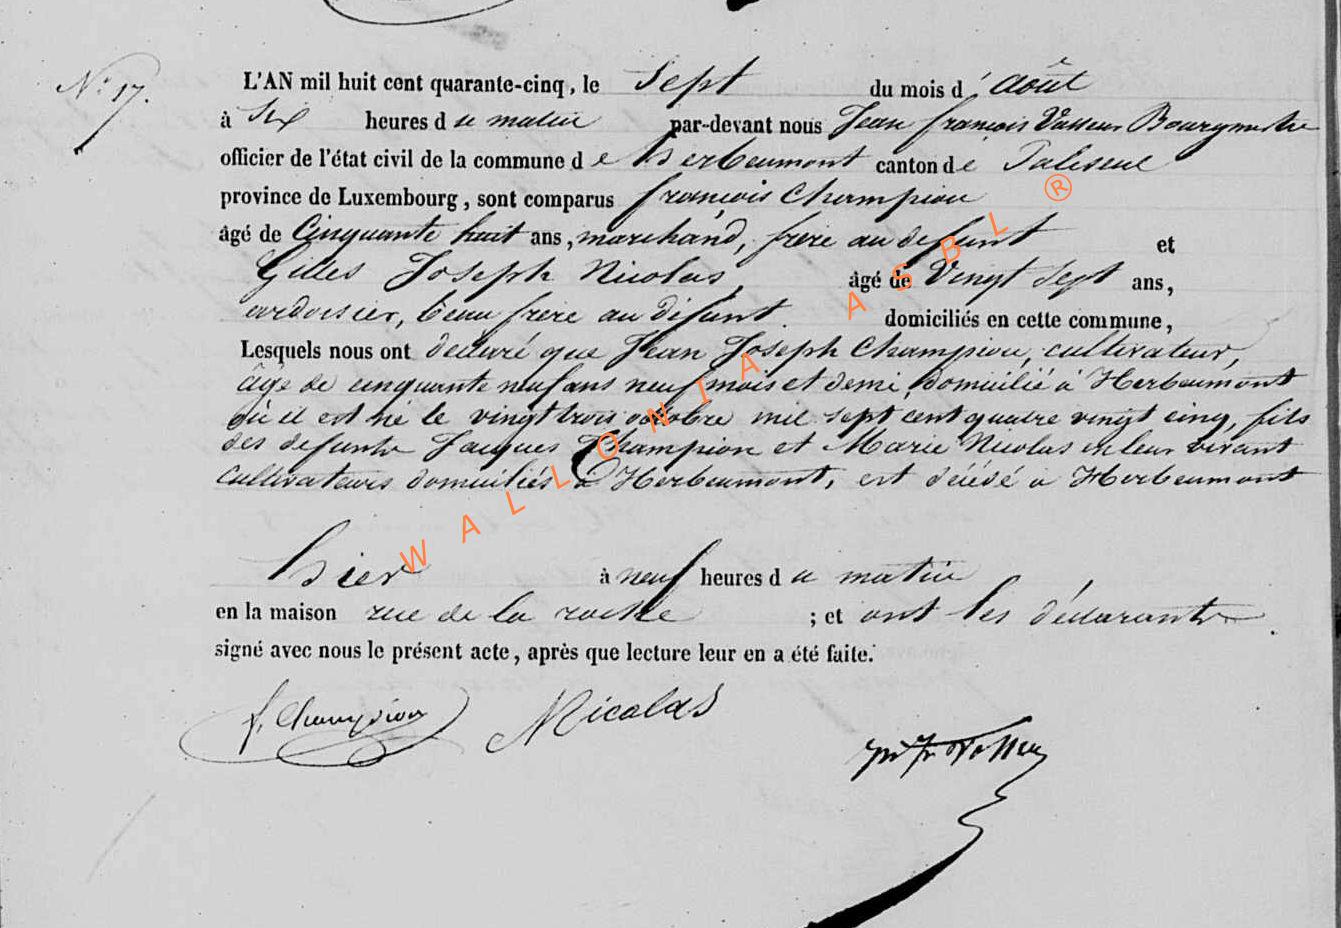 N° 17.
L'AN mil huit cent quarante-cinq, le Sept du mois d'Août
à Six heures du matin par-devant nous Jean françois Vasseur Bourgmestre
officier de l'état civil de la commune de herbeumont canton de Paliseul
province de Luxembourg, sont comparus françois Champion
âgé de Cinquante huit ans, marchand, frère au defunt et
Gilles Joseph Nicolas, âgé de Vingt Sept ans,
ardoisier, beau frère au défunt. domiciliés en cette commune,
Lesquels nous ont déclaré que Jean Joseph Champion, cultivateur,
âgé de cinquante neuf ans neuf mois et demi, domicilié à Herbeumont
où il est né le vingt trois octobre mil sept cent quatre vingt cinq, fils
des defunts Jacques Champion et Marie Nicolas en leur vivant
cultivateurs domiciliés à Herbeumont, est décédé a Herbeumont
hier à neuf heures du matin
en la maison rue de la roche ; et ont les déclarants
signé avec nous le présent acte, après que lecture leur en a été faite.
f. Champion Nicolas
WALLONIA ASBL ®